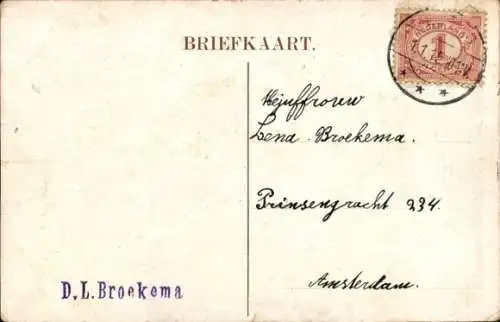 BRIEFKAART.
NEDERLAND
1
Mejuffrouw
Lena Broekema.
Prinsengracht 234.
Amsterdam.
D.L.Broekema